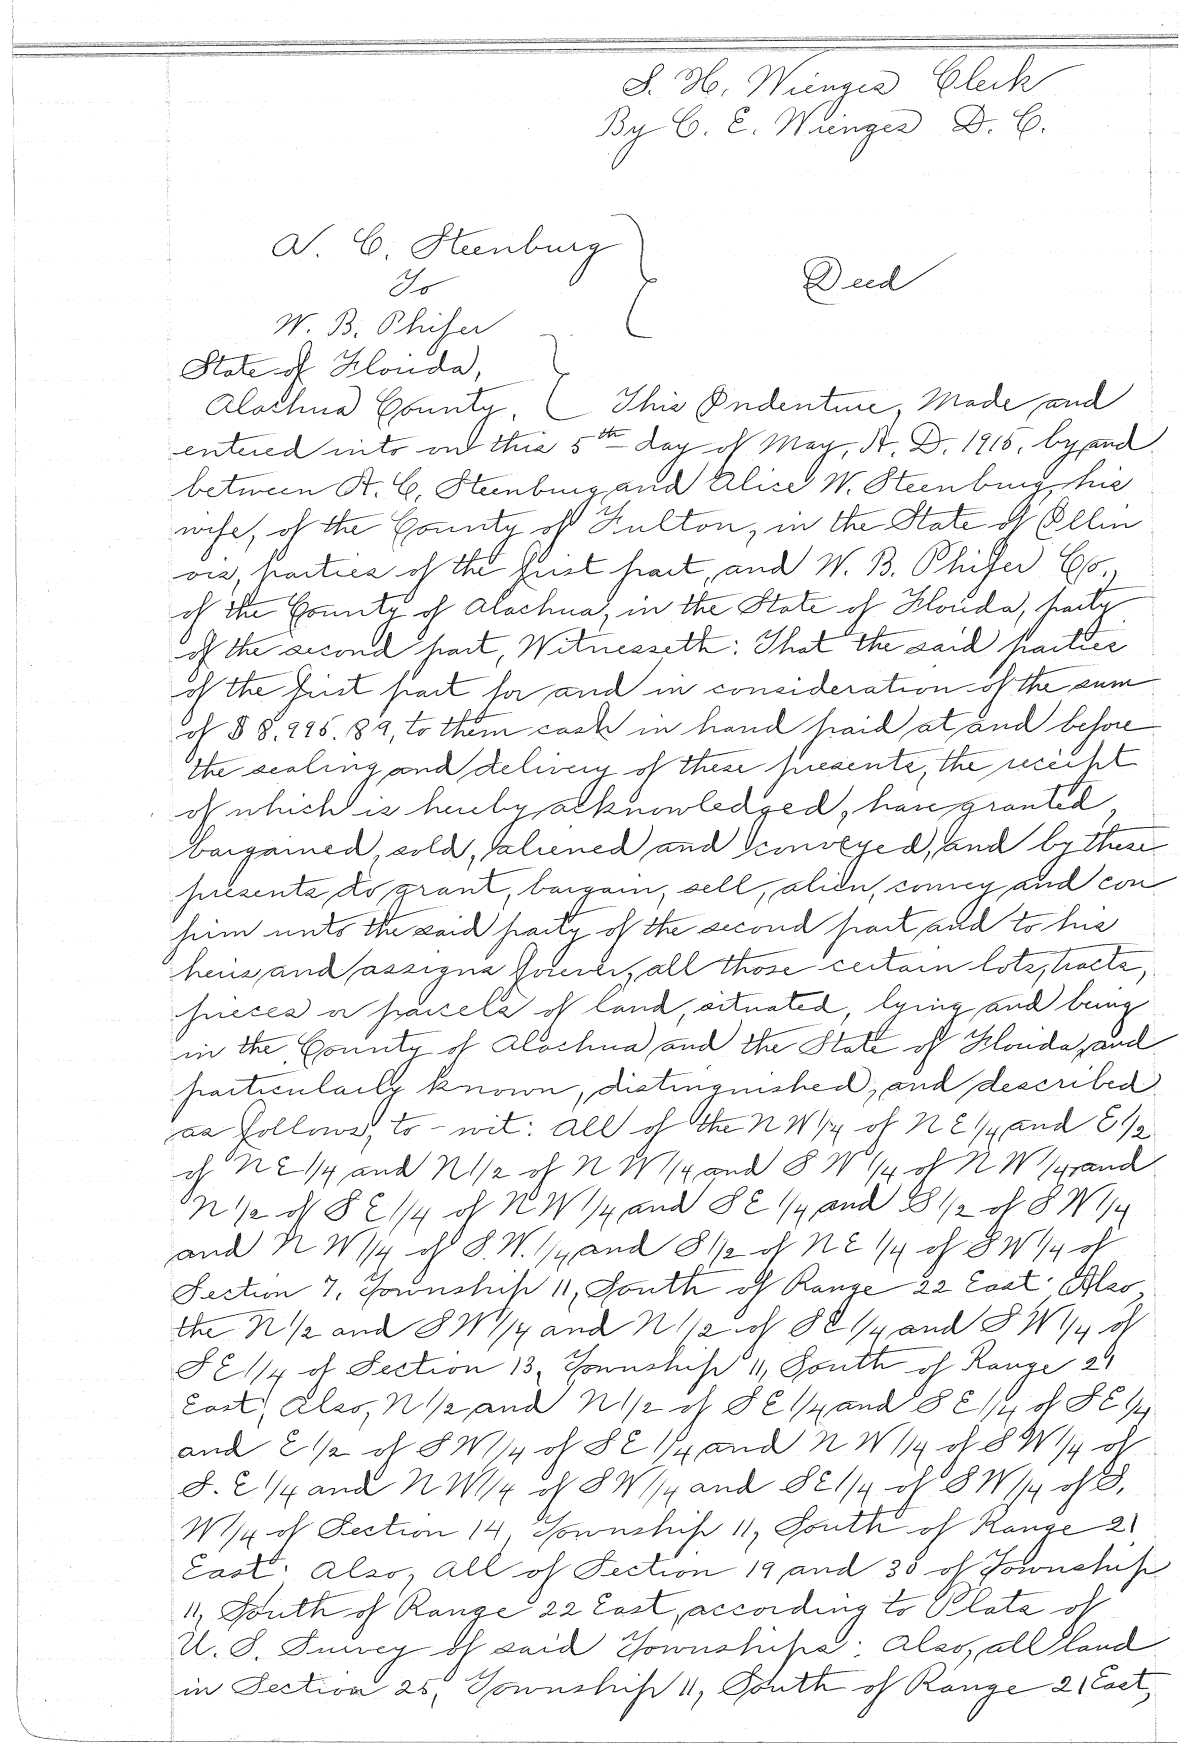 S. H. Wienges Clerk
By C. E. Wienges D. C.
A. C. Steenburg
To
Deed
W. B. Phifer
State of Florida,
Alachua County. This Indenture, Made and
entered into on this 5th day of May, A. D. 1915, by and
between A. C. Steenburg and Alice W. Steenburg, his
wife, of the County of Fulton, in the State of Illin
ois, parties of the first part, and W. B. Phifer Co.,
of the County of Alachua, in the State of Florida, party
of the second part, Witnesseth: That the said parties
of the first part for and in consideration of the sum
of $8,995.89, to them cash in hand paid at and before
the sealing and delivery of these presents, the receipt
of which is hereby acknowledged, have granted,
bargained, sold, aliened and conveyed, and by these
presents do grant, bargain, sell, alien, convey and con
firm unto the said party of the second part and to his
heirs and assigns forever, all those certain lots, tracts,
pieces or parcels of land, situated, lying and being
in the County of Alachua and the State of Florida, and
particularly known, distinguished, and described
as follows, to-wit: All of the NW1/4 of NE1/4 and E1/2
of NE1/4 and N1/2 of NW1/4 and SW1/4 of NW1/4 and
N1/2 of SE1/4 of NW1/4 and SE1/4 and S1/2 of SW1/4
and NW1/4 of S.W.1/4 and S1/2 of NE1/4 of SW1/4 of
Section 7, Township 11, South of Range 22 East; Also,
the N1/2 and SW1/4 and N1/2 of SE1/4 and SW1/4 of
SE1/4 of Section 13, Township 11, South of Range 21
East; Also, N1/2 and N1/2 of SE1/4 and SE1/4 of SE1/4
and E1/2 of SW1/4 of SE1/4 and NW1/4 of SW1/4 of
S.E1/4 and NW1/4 of SW1/4 and SE1/4 of SW1/4 of S.
W1/4 of Section 14, Township 11, South of Range 21
East; Also, all of Section 19 and 30 of Township
11, South of Range 22 East, according to Plats of
U. S. Survey of said Townships; Also, all land
in Section 25, Township 11, South of Range 21 East,